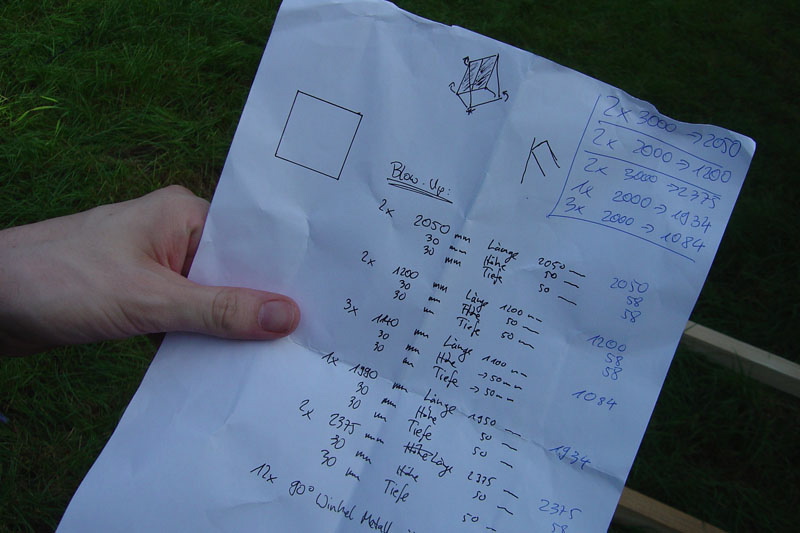 2x 3000 → 2050
2x 2000 → 1200
2x 3000 → 2375
1x 2000 → 1934
3x 2000 → 1084
Blow-Up:
2x 2050 mm Länge 2050 2050
30 mm Höhe 50 58
30 mm Tiefe 50 58
2x 1200 mm Länge 1200 1200
30 mm Höhe 50 58
30 mm Tiefe 50 58
3x 1140 mm Länge 1100 1084
30 mm Höhe → 50
30 mm Tiefe → 50
1x 1990 mm Länge 1950 1934
30 mm Höhe 50
30 mm Tiefe 50
2x 2375 mm Länge 2375 2375
30 mm Höhe 50 58
30 mm Tiefe 50
12x 90° Winkel Metall